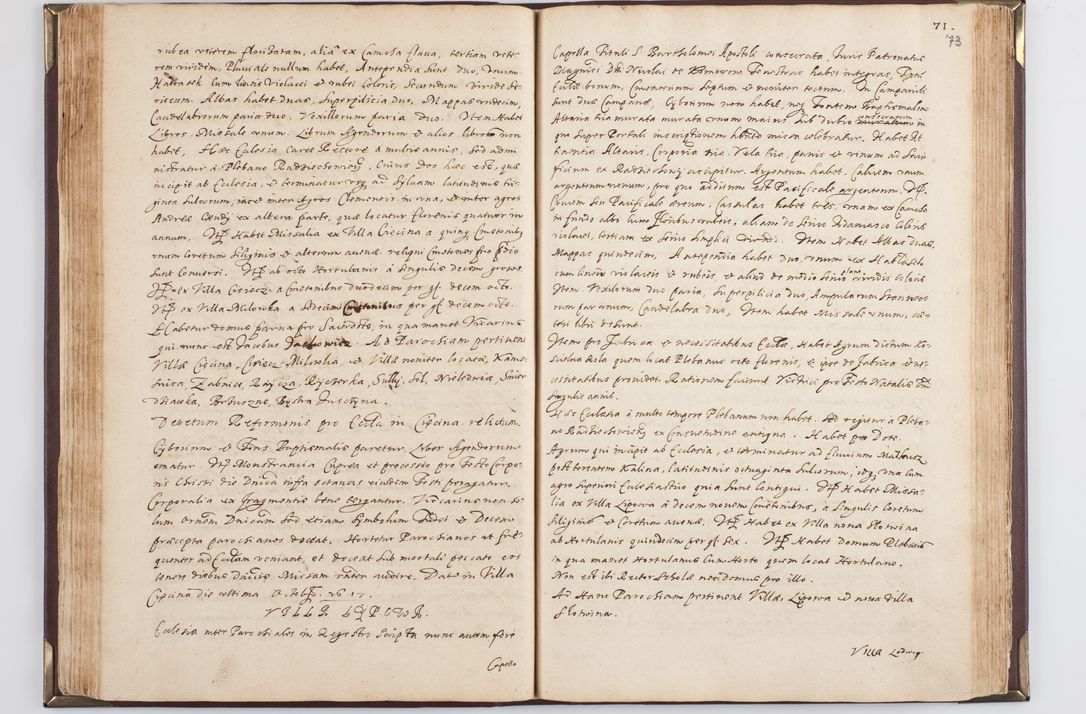 rubea veterem floridatam, alia ex Camcha flava, tertiam vete-
rem viridem, Pluviale nullum habet, Antependia sunt duo, unum
violacei et rubei coloris, secundum viride se-
riceum. Albas habet duas, Superpilicia duo, Mappas undecim,
Candelabrorum paria duo, Vexillorum paria duo. Item Habet
Libros. Missale unum. Librum Agendorum et alios libros non
habet, Haec Ecclesia caret Rectore a multis annis, sed admi-
nistratur a Plebano Radziechoviensi, Cuius dos haec est, quae
incipit ab Ecclesia, et terminatur usque ad Sylvam latitudinis tri-
ginta sulcorum, iacet inter Agros Clementis una, et inter agros
Andreae ex altera parte, quae locatur florenis quatuor in
annum. Item Habet Missalia ex Villa Ciecina a quinque Cmetonibus
unum Coretum Siliginis et alterum avenae, reliqui Cmetones pro
sunt Conversi. Item ab octo Hortulanis a singulis decem grossos.
Item ex Villa Ciesiecz a Cmetonibus duodecim per gr. decem octo.
Item ex Villa Milowka a sedecim Cmetonibus per gr. decem octo.
Habetur domus parva pro Sacerdote, in qua manet Vicarius
qui nunc est Jacobus Jachowicz. Ad Parochiam pertinent
Villae Ciecina, Ciesiecz, Milowka, et Villae noviter locatae, Kame-
sznica, Zabnica, Raycza, Rycierka, Sulky, Sol, Nieledwia,
Brtuszne, Bystra Juszczyna.
Decretum Reformationis pro Ecclesia in Cięcina relictum.
Cyborium et Fons Baptismalis paretur, Liber Agendorum
ematur. Item Monstrancia Cuprea et processio pro Festo Corpo-
ris Christi die Dominica infra octavas eiusdem Festi peragatur.
Corporalia ex fragmentis bene tergantur. Vicarius non so-
lum oraonem Dnicam sed etiam Symbolum Fidei et Decem
praecepta parochianos doceat, Hortetur Parochianos ut fre-
quenter ad Ecclesiam veniant, et doceat sub mortali peccato eos
tenere diebus Dnicis Missam audire. Dat in Villa
Cięcina die ultima Octobris. 1617.
VILLA LYPOWA.
Ecclesia inter Parochiales in Regestro scripta nunc autem fere
Capella
71.
73
Capella Tituli S. Bartholomei Apostoli consecrata, Iuris Patronatus
Magnifici Dni Nicolai de Komorow Fenestras habet integras,
bonum, Cemiterium septum et noviter tectum. In Campanili
sunt duae Campanae, Cyborium non habet, neque Fontem Baptismalem
Altaria tria murata unum maius sub dubio consecratum in
quo super Portali missa celebratur. Habet At-
tinentia Altaris, Corporia tria. Vela tria, panis et vinum ad Sacri-
ficium ex Radziechowy accipitur. Argentum habet. Calicem unum
argenteum, pro quo additum est Pacificale argenteum. Item
Crucem seu Pacificale aereum, Casulas habet tres. unam ex Camcha
in fundo albo cum floribus rubeis, aliam de serico Adamasco coloris
violacei, tertiam ex serico simplici viridi. Item Habet Albas duas,
Mappas quindecim, Antependia habet duo, unum ex
cum lineis violaceis et rubeis, et aliud de medio serico viridis coloris
Item Vexillorum duo paria, Superpilicia duo, Ampularum stanneo-
rum par unum, Candelabra duo, Item habet Missale unum, cae-
teri libri desunt.
Item pro Fabrica et necessitatibus Eccliae, Habet Agrum dictum Ko-
scielna Rola quem locat Plebanus octo florenis, et ipse de Fabrica et ne-
cessitatibus providet. Rationem faciunt Vitrici pro Festo Natalis Dni
singulis annis.
Haec Ecclesia a multo tempore Plebanum non habet. Sed regitur a Pleba-
no Radziechoviensi ex Consuetudine antiqua. Habet pro Dote
Agrum qui incipit ab Ecclesia, et terminatur ad Fluvium
post torrentem Kalina, latitudinis octuaginta sulcorum, idque una cum
agro superiori Ecclesiastico quia sunt contigui. Item Habet Missa-
lia ex Villa Lipowa a decem novem Cmetonibus, a singulis Coretum
Siliginis et Coretum avenae. Item Habet ex Villa nova Slotwina
ab Hortulanis quindecim per gr. sex. Item Habet Domum Plebanis
in qua manet Hortulanus cum Horto quem locat Hortulano.
Non est ibi Rector scholae nec domus pro illo.
Ad Hanc Parochiam pertinent Villae, Lipowa et nova Villa
Slotwina.
Villa Lodwig.